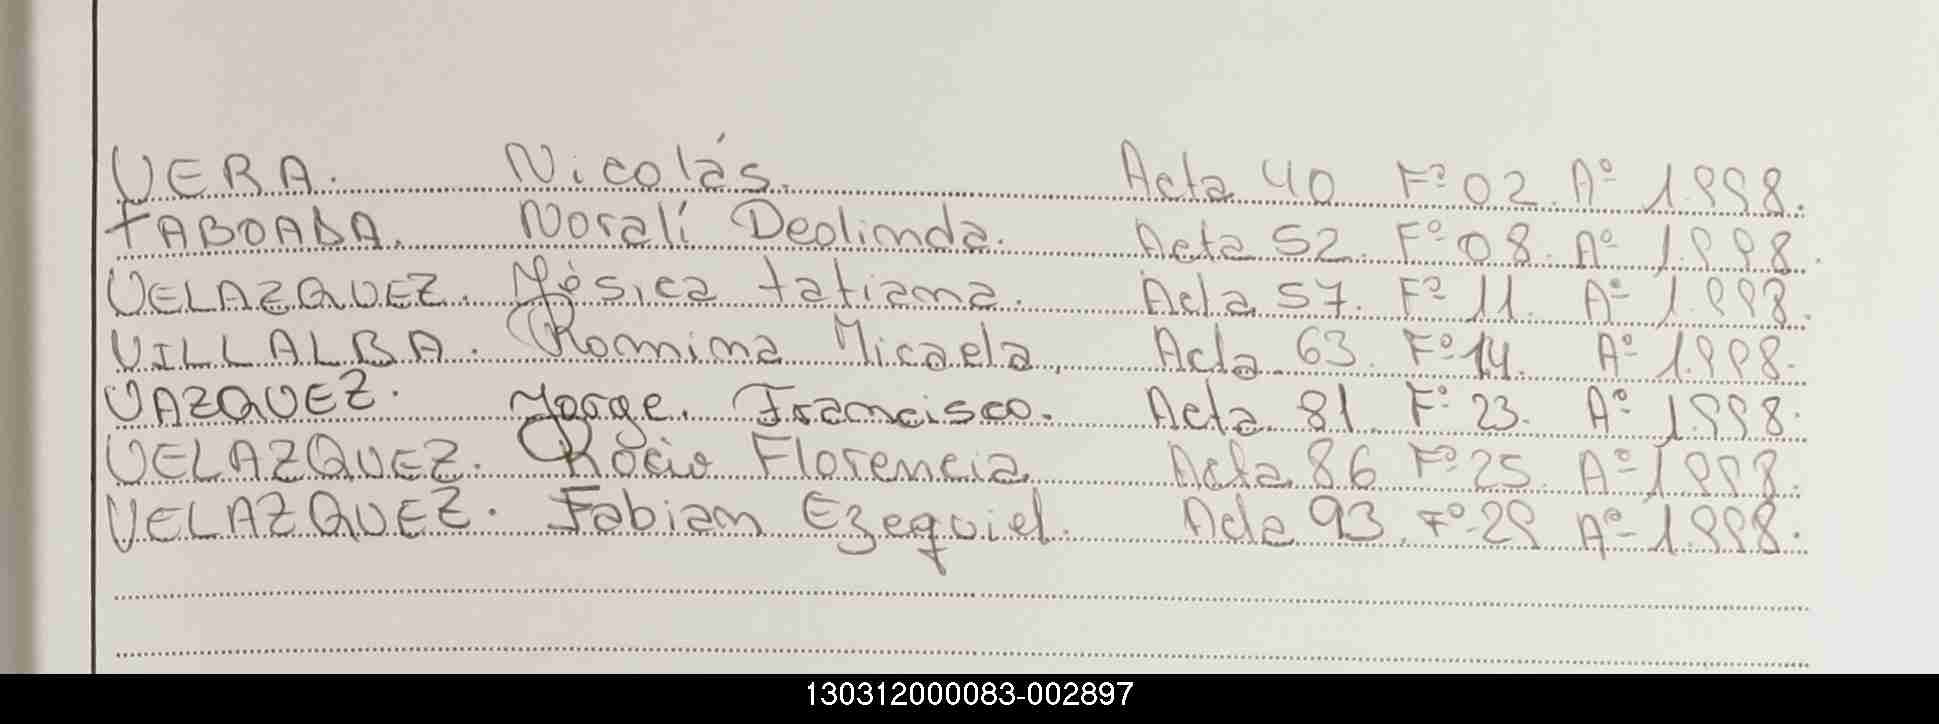 VERA. Nicolás. Acta 40 Fº 02. Aº 1.998.
TABOADA. Noralí Deolinda. Acta 52. Fº 08. Aº 1.998.
VELAZQUEZ. Yésica Tatiana. Acta 57. Fº 11. Aº 1.998.
VILLALBA. Romina Micaela. Acta 63. Fº 14. Aº 1.998.
VAZQUEZ. Jorge. Francisco. Acta 81 Fº 23. Aº 1.998.
VELAZQUEZ. Rocio Florencia Acta 86 Fº 25. Aº 1.998.
VELAZQUEZ. Fabian Ezequiel. Acta 93. Fº 29 Aº 1.998.
130312000083-002897